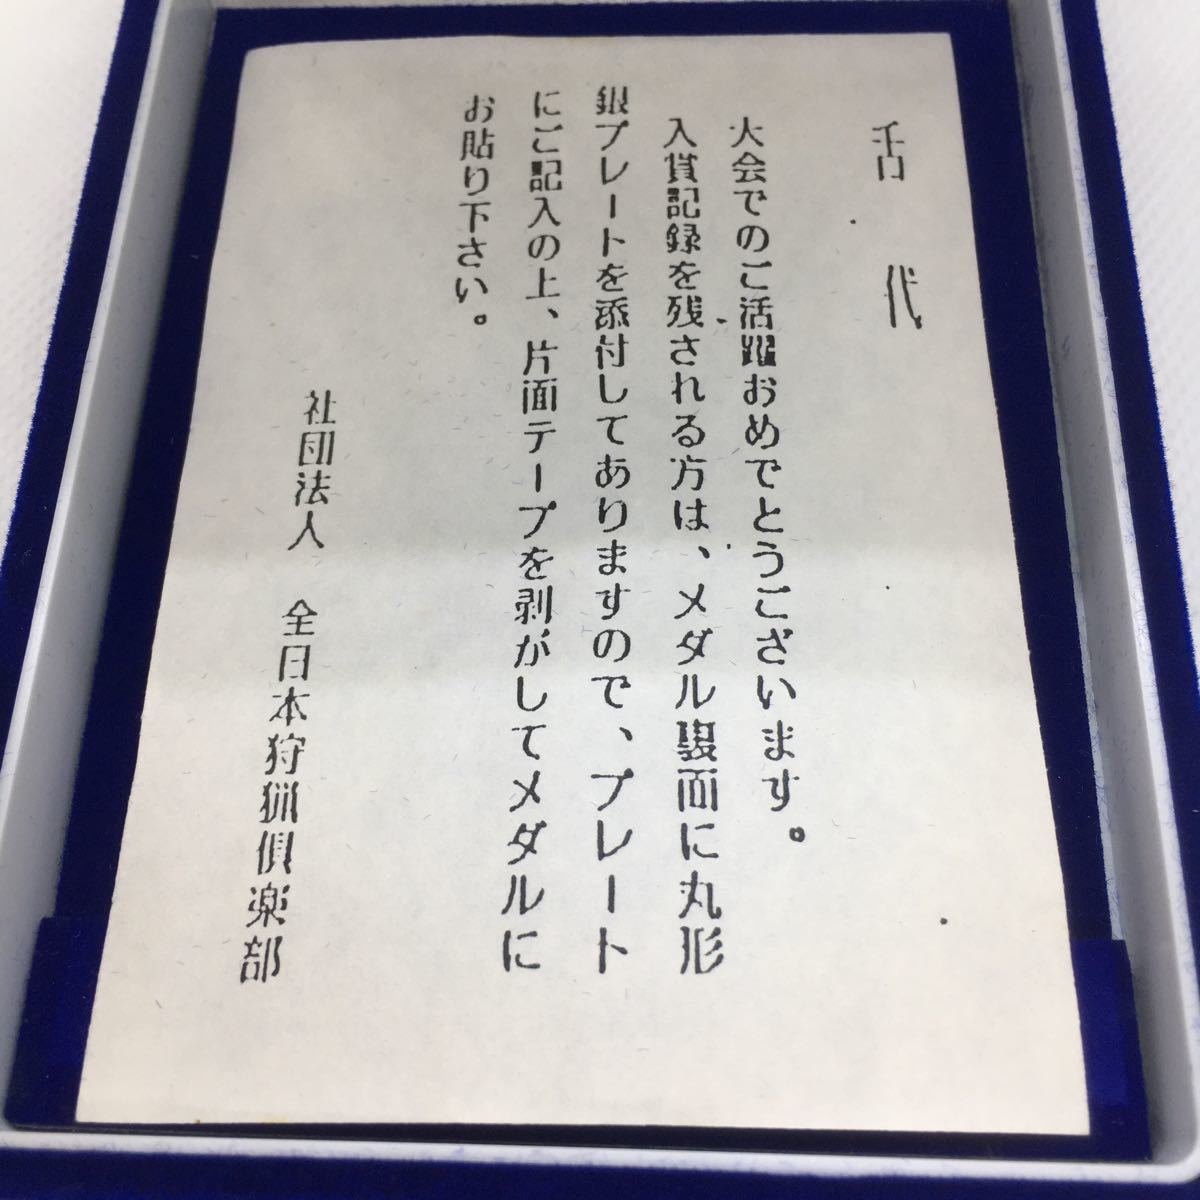 舌代
大会でのご活躍おめでとうございます。
入賞記録を残される方は、メダル裏面に丸形
銀プレートを添付してありますので、プレート
にご記入の上、片面テープを剥がしてメダルに
お貼り下さい。
社団法人 全日本狩猟倶楽部